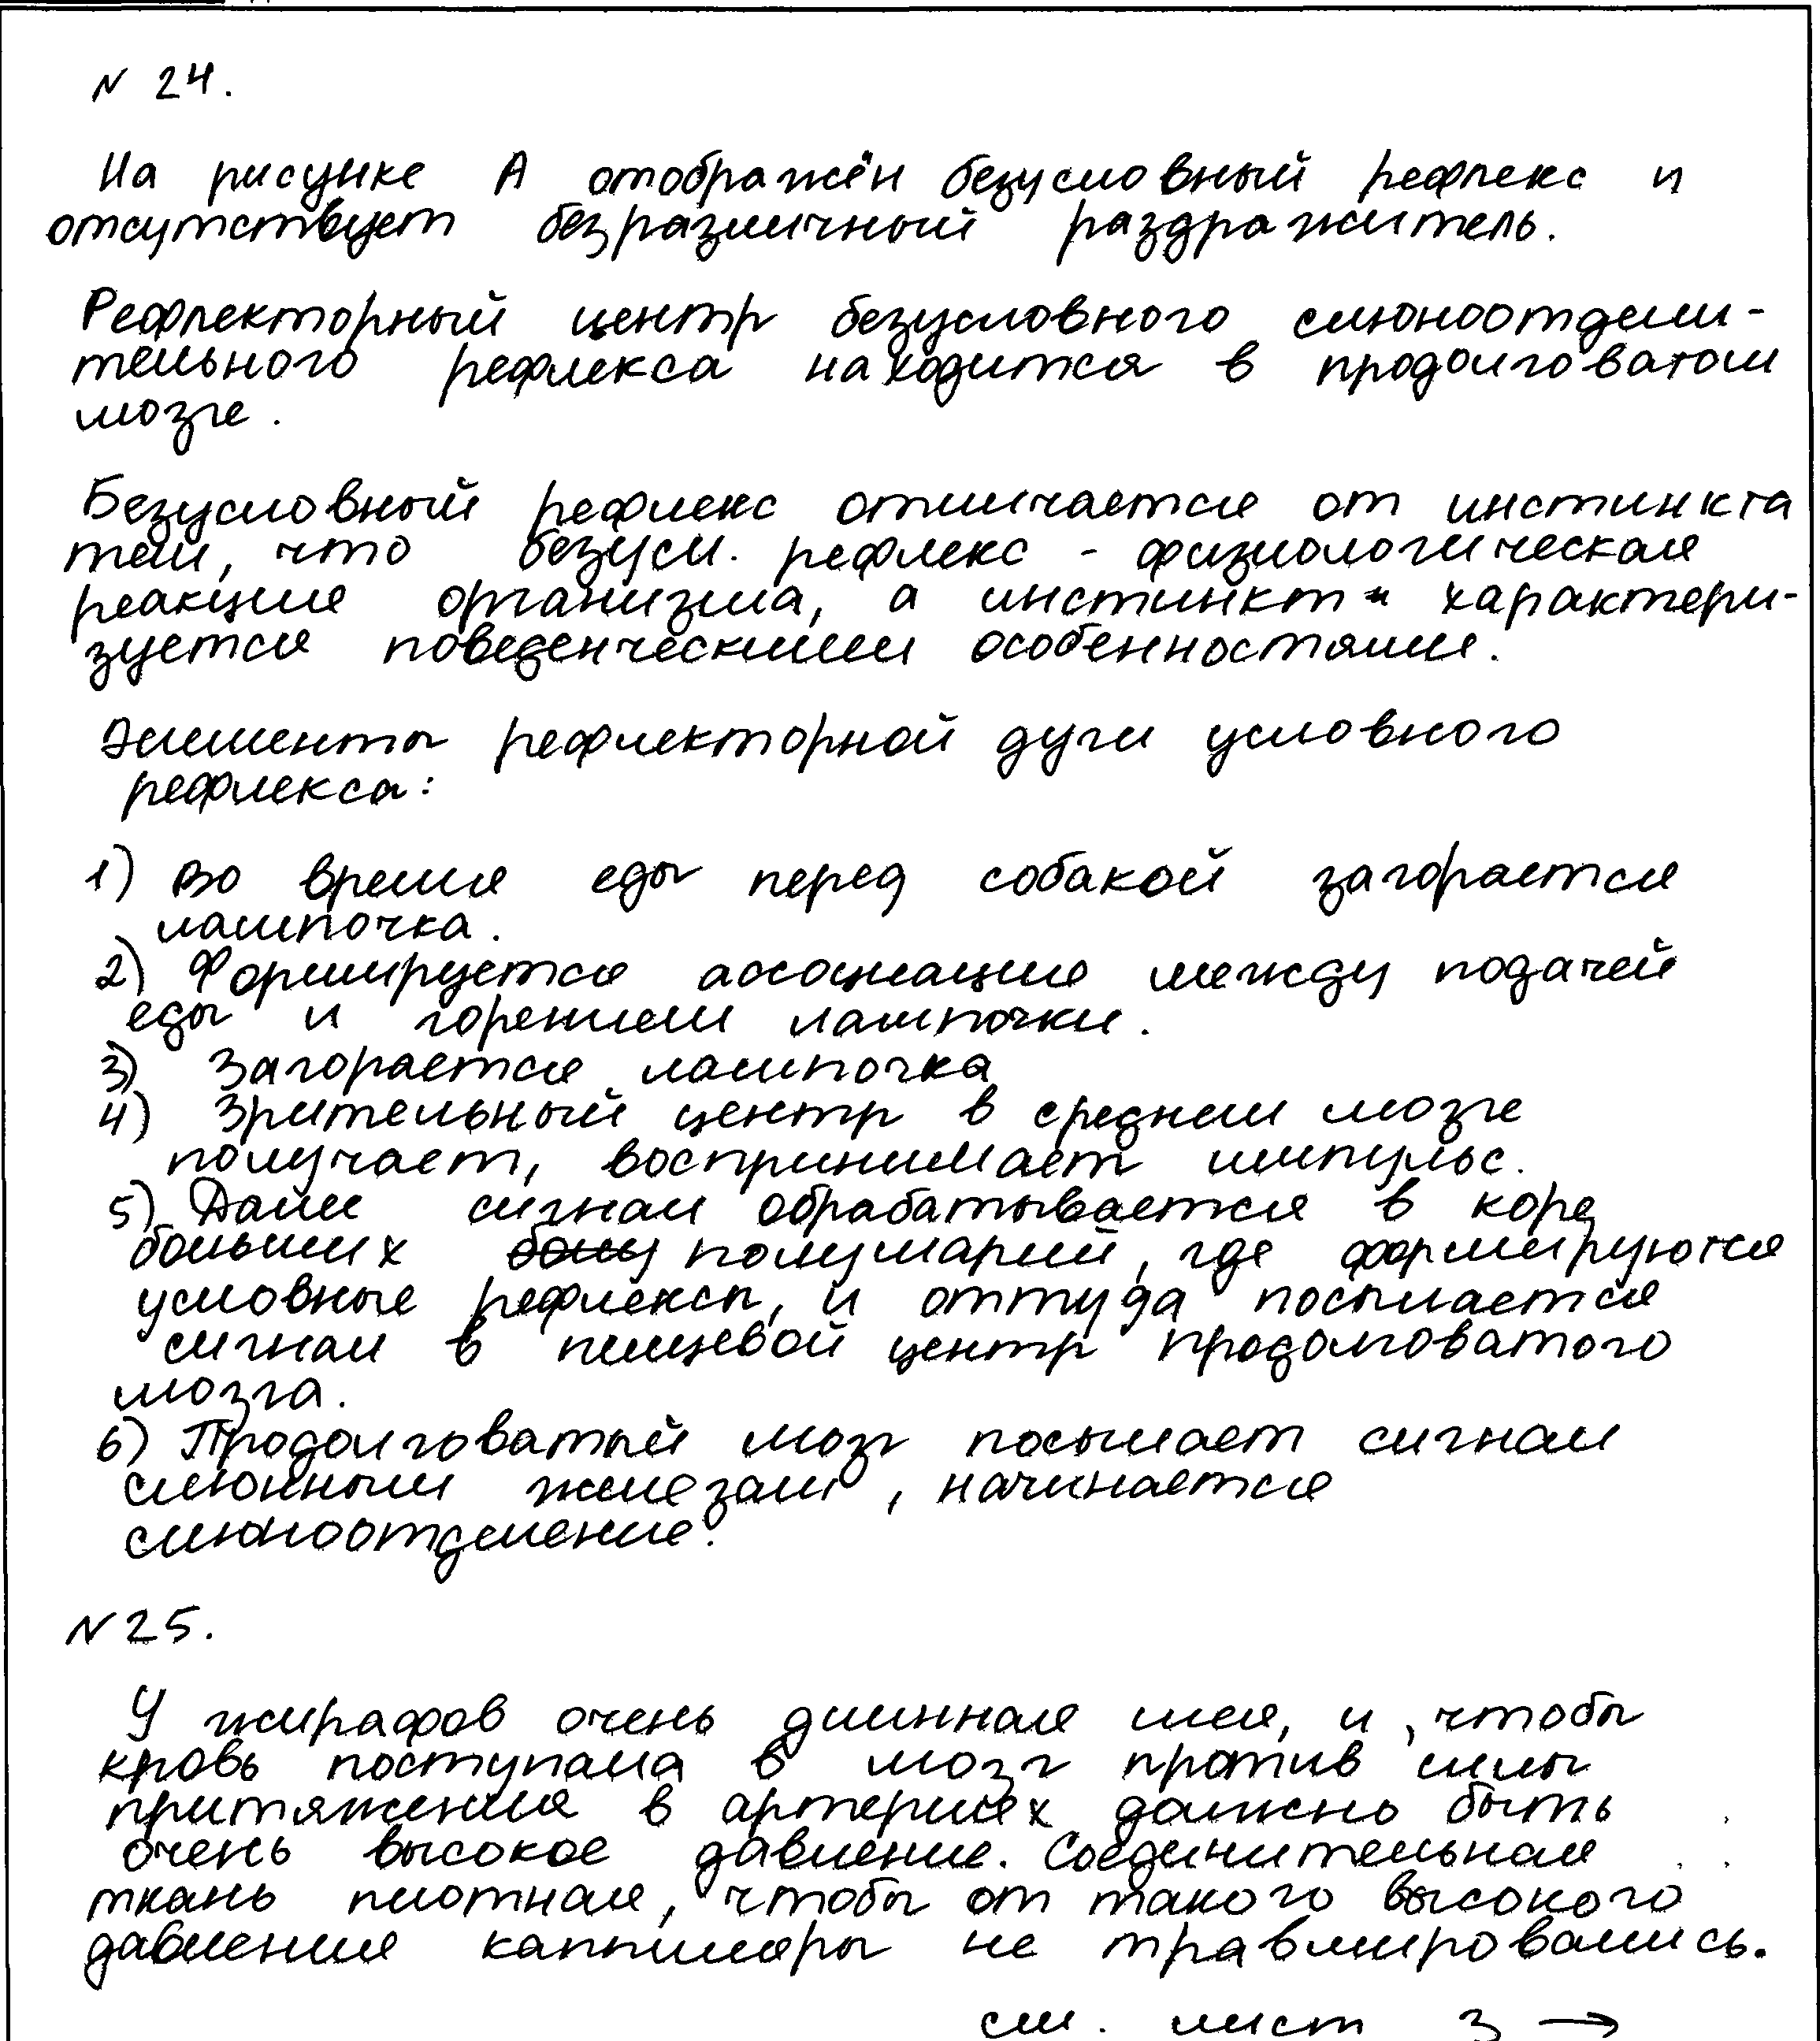 N 24.
На рисунке А отображён безусловный рефлекс и
отсутствует безразличный раздражитель.
Рефлекторный центр безусловного слюноотдели-
тельного рефлекса находится в продолговатом
мозге.
Безусловный рефлекс отличается от инстинкта
тем, что безусл. рефлекс - физиологическая
реакция организма, а инстинкт - характери-
зуется поведенческими особенностями.
Элементы рефлекторной дуги условного
рефлекса:
1) Во время еды перед собакой загорается
лампочка.
2) Формируется ассоциация между подачей
еды и горением лампочки.
3) Загорается лампочка
4) Зрительный центр в среднем мозге
получает, воспринимает импульс.
5) Далее сигнал обрабатывается в коре
больших полушарий, где формируются
условные рефлексы, и оттуда посылается
сигнал в пищевой центр продолговатого
мозга.
6) Продолговатый мозг посылает сигнал
слюнным железам, начинается
слюноотделение.
N 25.
У жирафов очень длинная шея, и, чтобы
кровь поступала в мозг против силы
притяжения в артериях должно быть
очень высокое давление. Соединительная
ткань плотная, чтобы от такого высокого
давления капилляры не травмировались.
см. лист 3 →